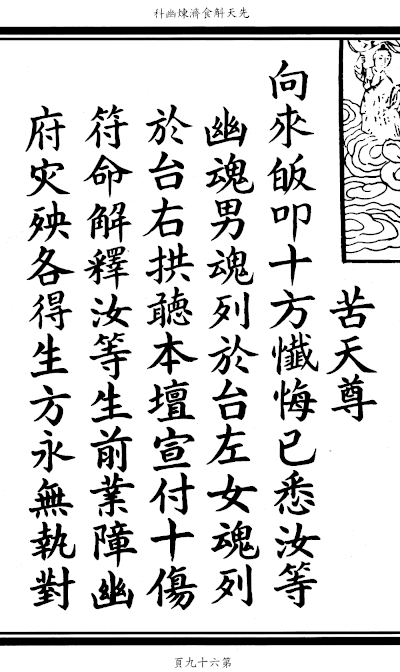 先天斛食濟煉幽科
苦天尊
向來皈叩十方懺悔已悉汝等
幽魂男魂列於台左女魂列
於台右拱聽本壇宣付十傷
符命解釋汝等生前業障幽
府灾殃各得生方永無執對
第六十九頁